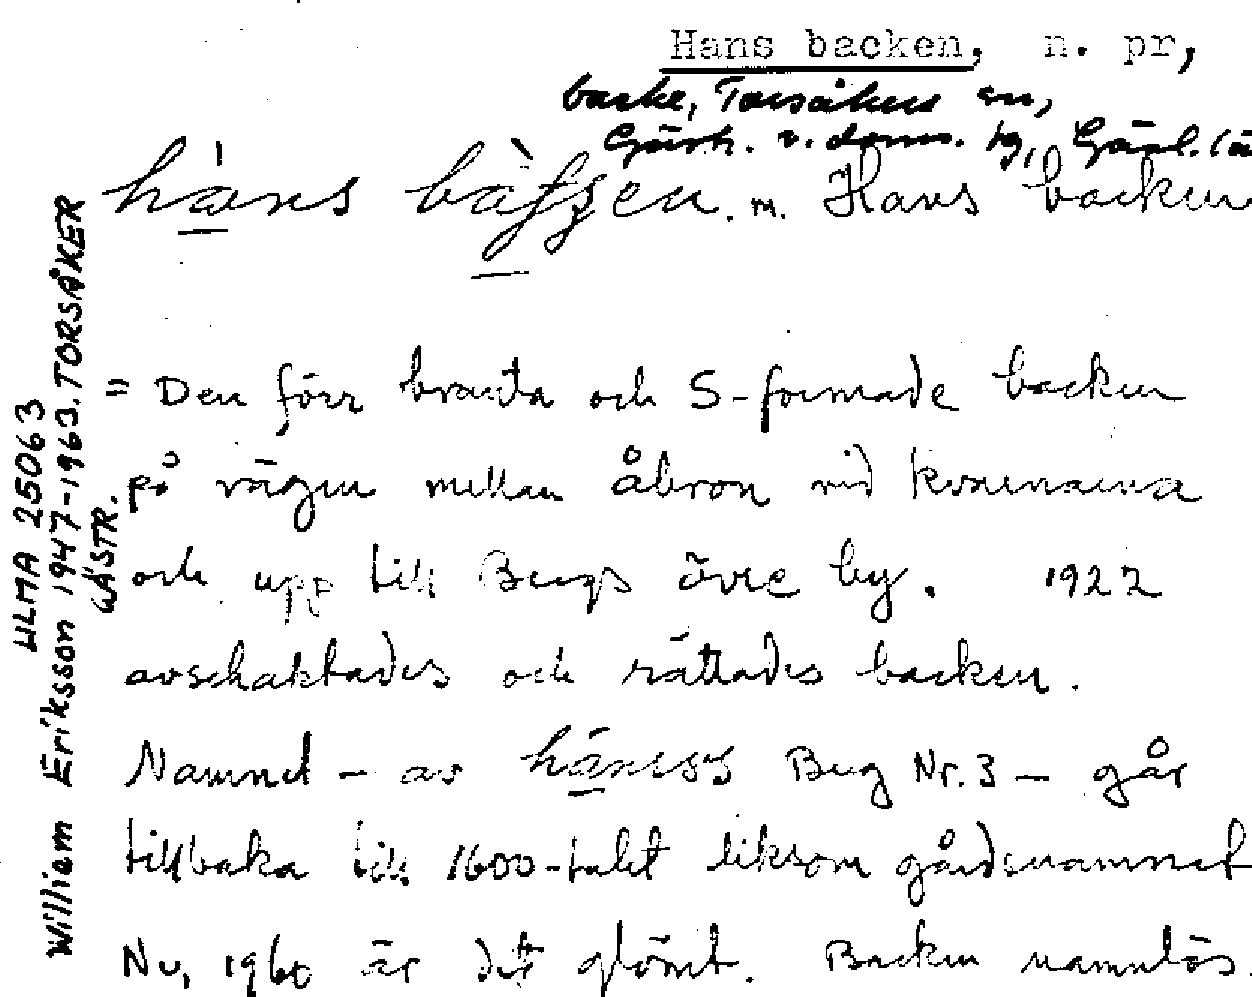 Hans backen, n. pr,
backe, Torsåkers sn,
Gästr. v. doms. tg, Gävl. lä
häns m. Hans backen
= Den förr branta och S-formade backen
på vägen mellan åbron vid kvarnarna
och upp till Bergs övre by. 1922
avschaktades och rättades backen.
Namnet - av Berg Nr. 3 - går
tillbaka till 1600-talet liksom gårdsnamnet
Nu, 1960 är det glömt. Backen namnlös.
ULMA 25063
William Eriksson 1947-1963. TORSÅKER
GÄSTR.